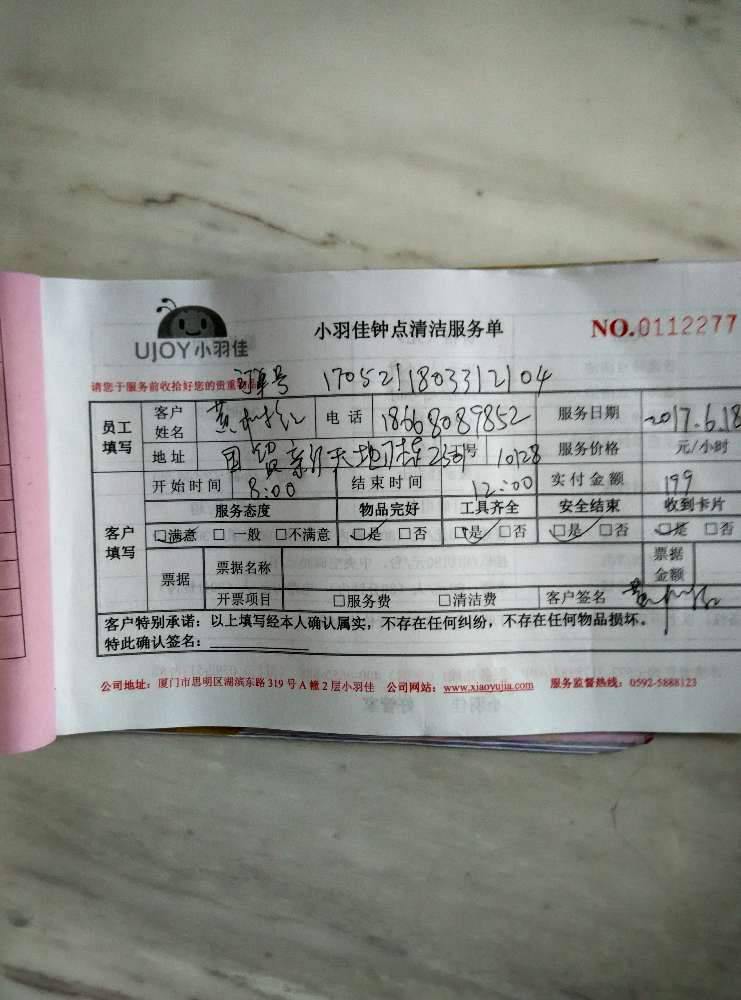 UJOY小羽佳
小羽佳钟点清洁服务单
NO.0112277
请您于服务前收拾好您的贵重
订单号 1705211803312104
员工填写 客户姓名 黄 电话 18668089852 服务日期 2017.6.18
地址 国贸新天地 号 1028 服务价格 元/小时
开始时间 8:00 结束时间 12:00 实付金额 199
客户填写 服务态度 物品完好 工具齐全 安全结束 收到卡片
□满意 □一般 □不满意 □是 □否 □是 □否 □是 □否 □是 □否
票据 票据名称 票据金额
开票项目 □服务费 □清洁费 客户签名 黄
客户特别承诺：以上填写经本人确认属实，不存在任何纠纷，不存在任何物品损坏。
特此确认签名：
公司地址：厦门市思明区湖滨东路319号A幢2层小羽佳 公司网站：www.xiaoyujia.com 服务监督热线：0592-5888123